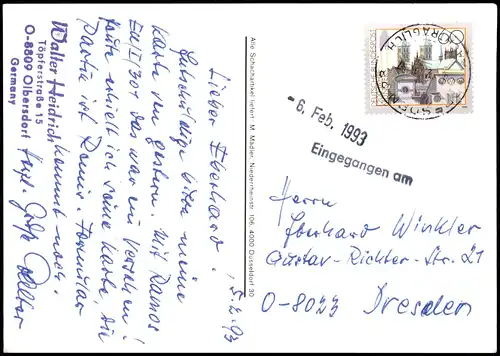 Walter Heidrich
Töpferstraße 15
O-8809 Olbersdorf
Germany
5.2.93
Lieber Eberhard,
Entschuldige bitte meine
Karte von gestern. Mit Ramos
EU/I/301 das war ein Versehen!
Heute erhielt ich seine Karte, die
Partie ist Remis. Formular
kommt noch.
Herzl. Grüße
Walter
Alle Schachartikel liefert: M. Mädler, Niederrheinstr. 106, 4000 Düsseldorf 30
-6. Feb. 1993
Eingegangen am
Herrn
Eberhard Winkler
Gustav-Richter-Str. 21
O-8023 Dresden